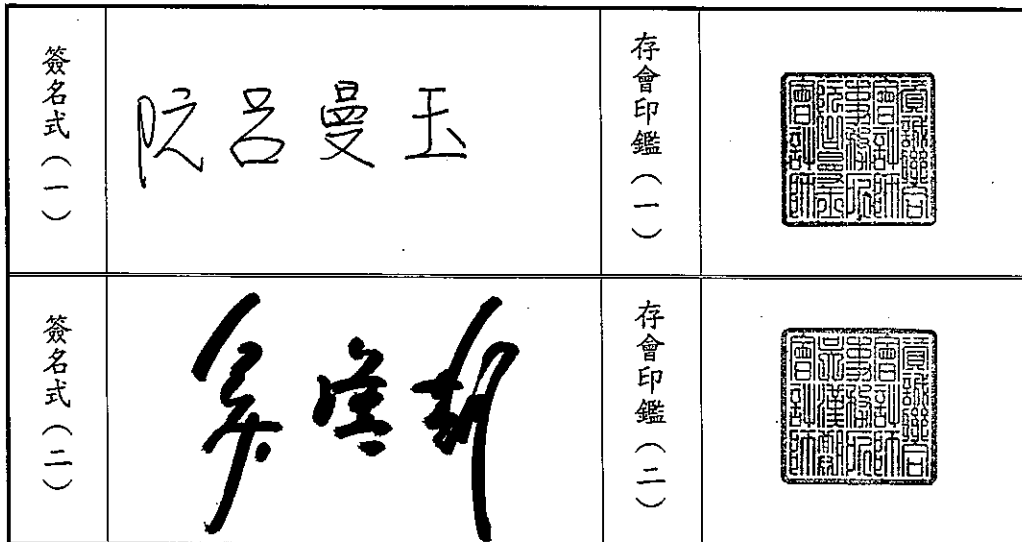 簽名式(一)
阮呂曼玉
存會印鑑(一)
資誠聯合
會計師
事務所
阮呂曼玉
會計師
簽名式(二)
存會印鑑(二)
資誠聯合
會計師
事務所
吳漢期
會計師